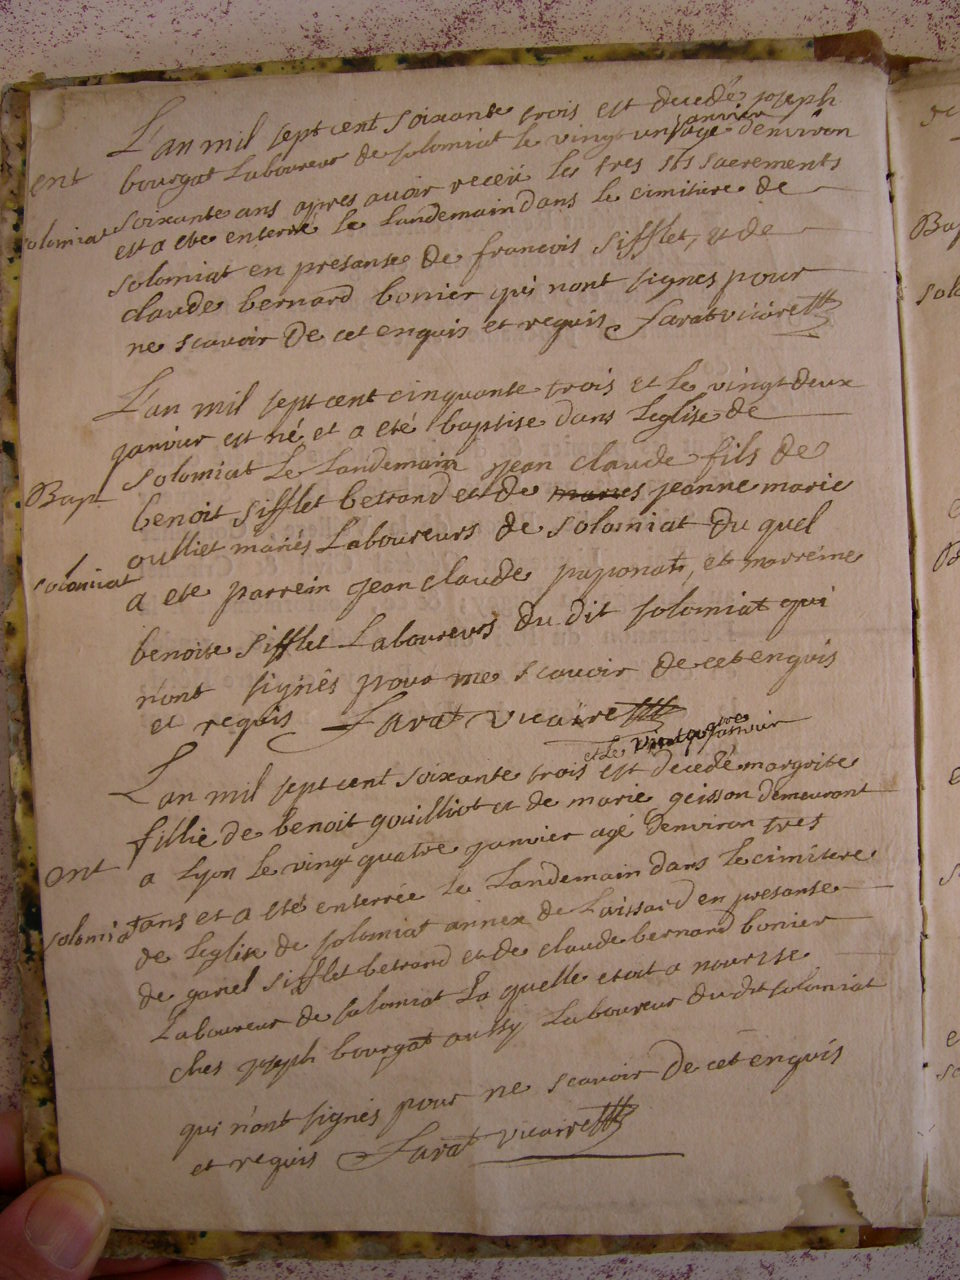 L'an mil sept cent soixante trois est decedé joseph
bourgat Laboureur de solomiat le vingt un janvier agé d'environ
ent
soixante ans apres avoir receü les tres sts sacrements
solomiat
est a ete enterré le Landemain dans le cimitiere de
solomiat en presanse de francois sifflet, et de
claude bernard bonier qui nont signes pour
ne scavoir de cet enquis et requis Sarat vicaire
L'an mil sept cent cinquante trois et le vingt deux
janvier est né et a eté baptise dans Leglise de
solomiat Le Landemain jean claude fils de
Bap
benoit sifflet betrand et de jeanne marie
oulliet mariés Laboureurs de solomiat du quel
solomiat
a ete parrein jean claude paponat, et marreine
benoite sifflet Laboureurs du dit solomiat qui
n'ont signés pour ne scavoir de cet enquis
et requis Sarat vicaire
et Le vint quatre janvier
L'an mil sept cent soixante trois est decedé margrite
fillie de benoit gouilliot et de marie geisson demeurant
a Lyon le vingt quatre janvier agé denviron tres
ent
ans et a eté enterrée le Landemain dans Le cimitere
solomiat
de Leglise de solomiat annex de Laissard en presanse
de gariel sifflet betrand et de claude bernard bonier
Laboureur de solomiat La quelle etoit a nourise
ches joseph bourgat aussy Laboureur du dit solomiat
qui n'ont signés pour ne scavoir de cet enquis
et requis Sarat vicaire
Bap